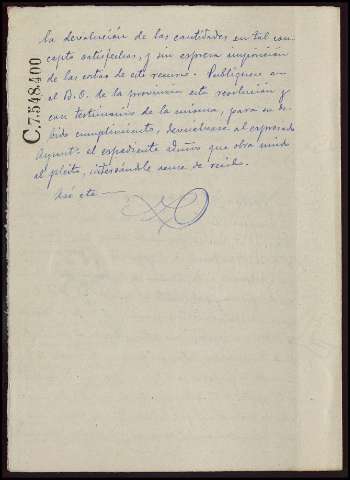 la devolución de las cantidades en tal con-
cepto satisfechas, y sin expresa imposición
de las costas de este recurso. Publíquese en
el B.O. de la provincia esta resolución y
con testimonio de la misma, para su de-
bido cumplimiento, devuélvase al expresado
Ayuntº el expediente admvo que obra unido
al pleito, interesándole acuse de recibo.
Así etc
C.7.548.400